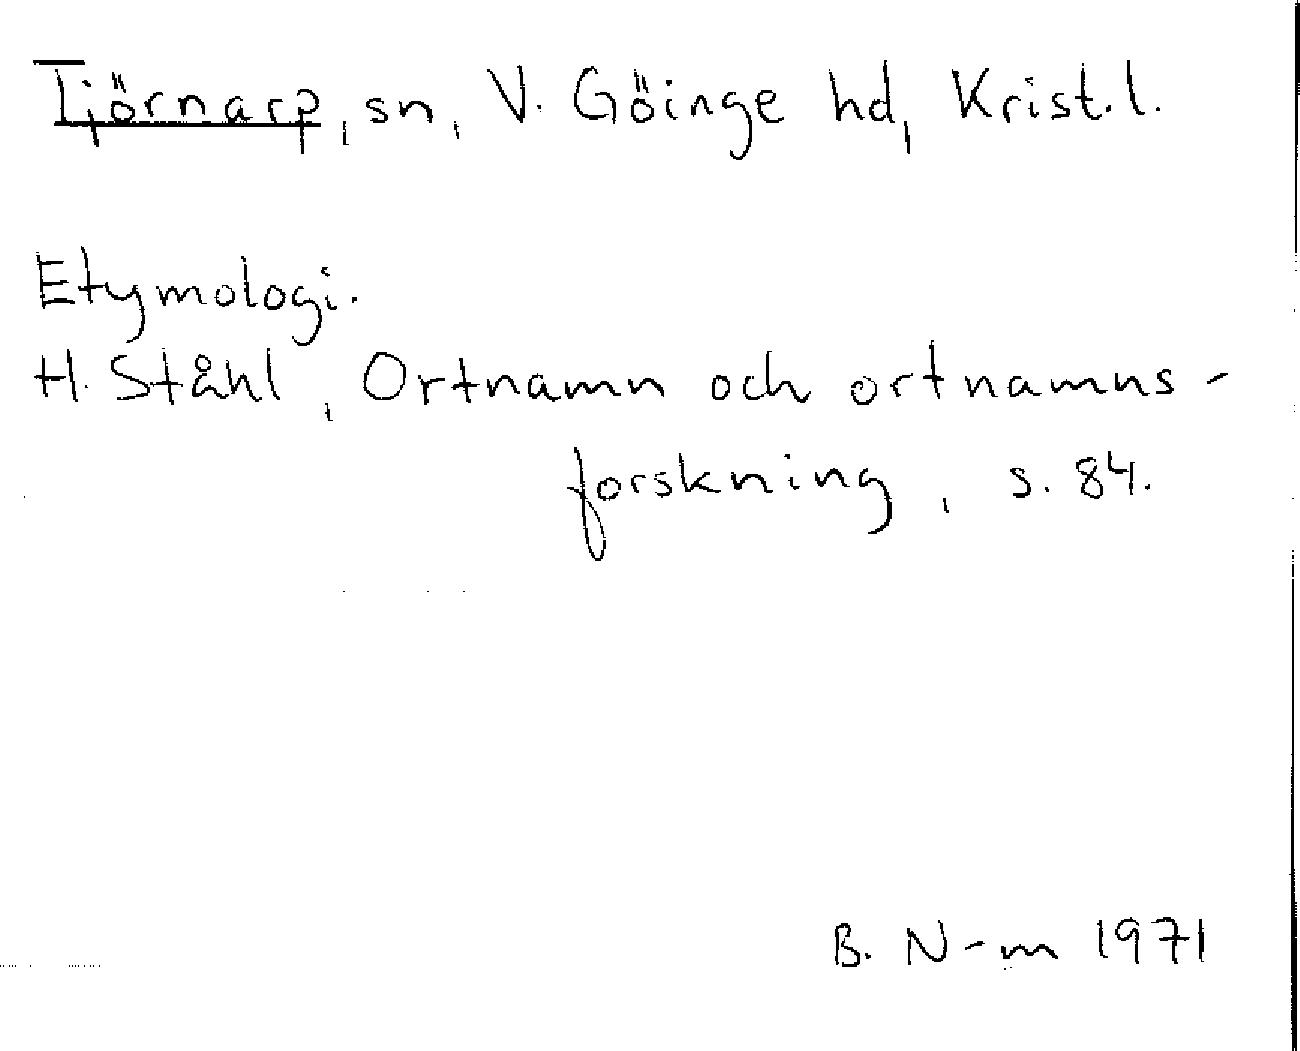 Tjörnarp, sn, V. Göinge hd, Krist.l.
Etymologi.
H. Ståhl, Ortnamn och ortnamns-
forskning, s. 84.
B. N-m 1971